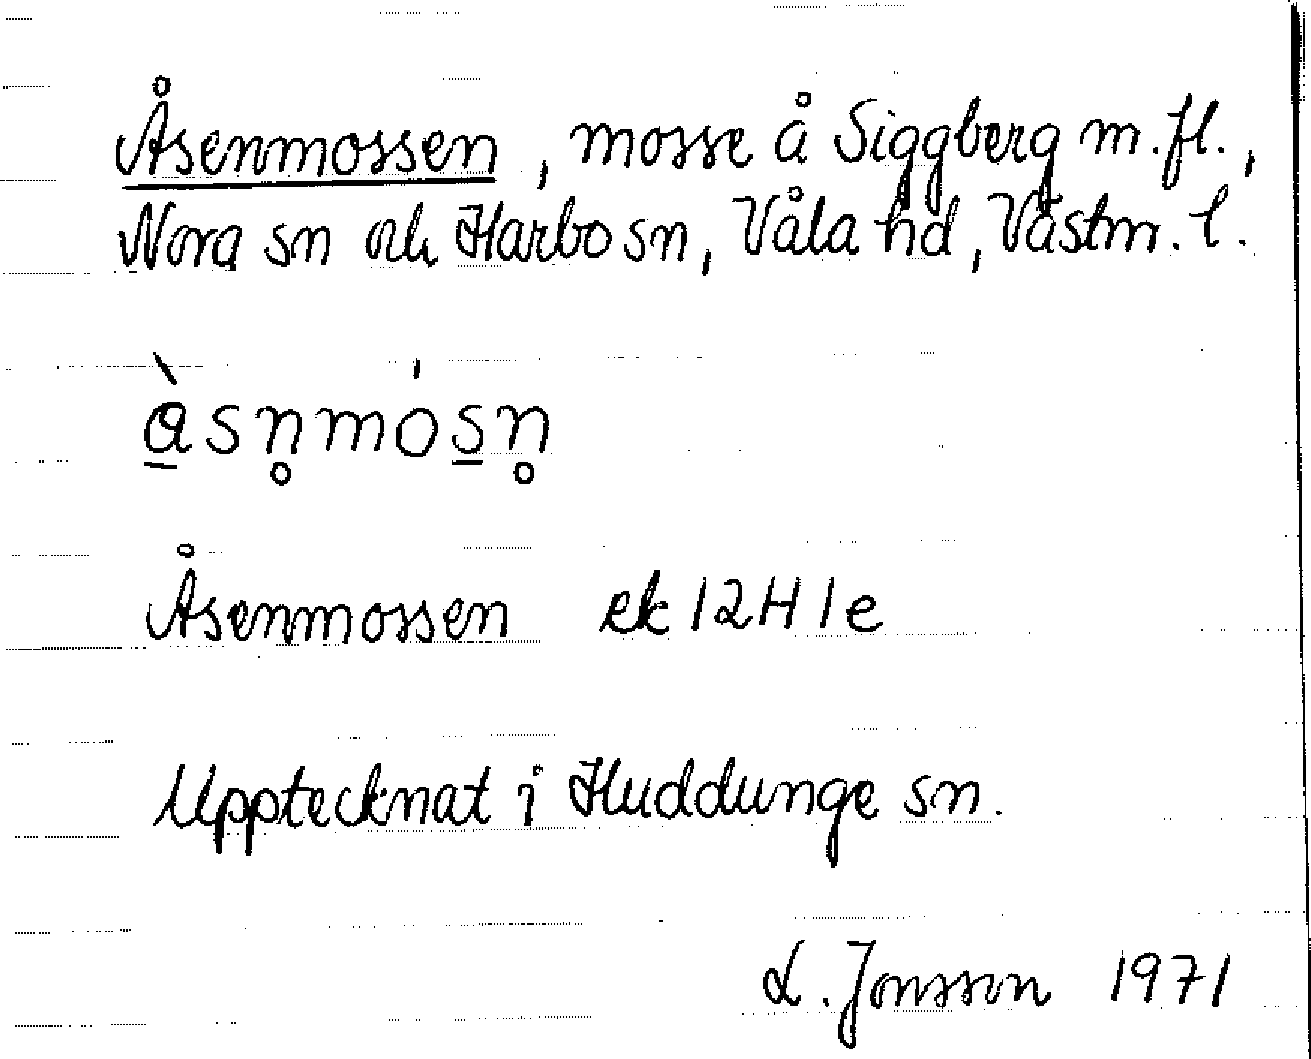 Åsenmossen, mosse å Siggberg m.fl.,
Nora sn och Harbo sn, Våla hd, Västm. l.
à̱sn̥mós̱n̥
Åsenmossen ek 12H1e
Upptecknat i Huddunge sn.
L. Jonsson 1971